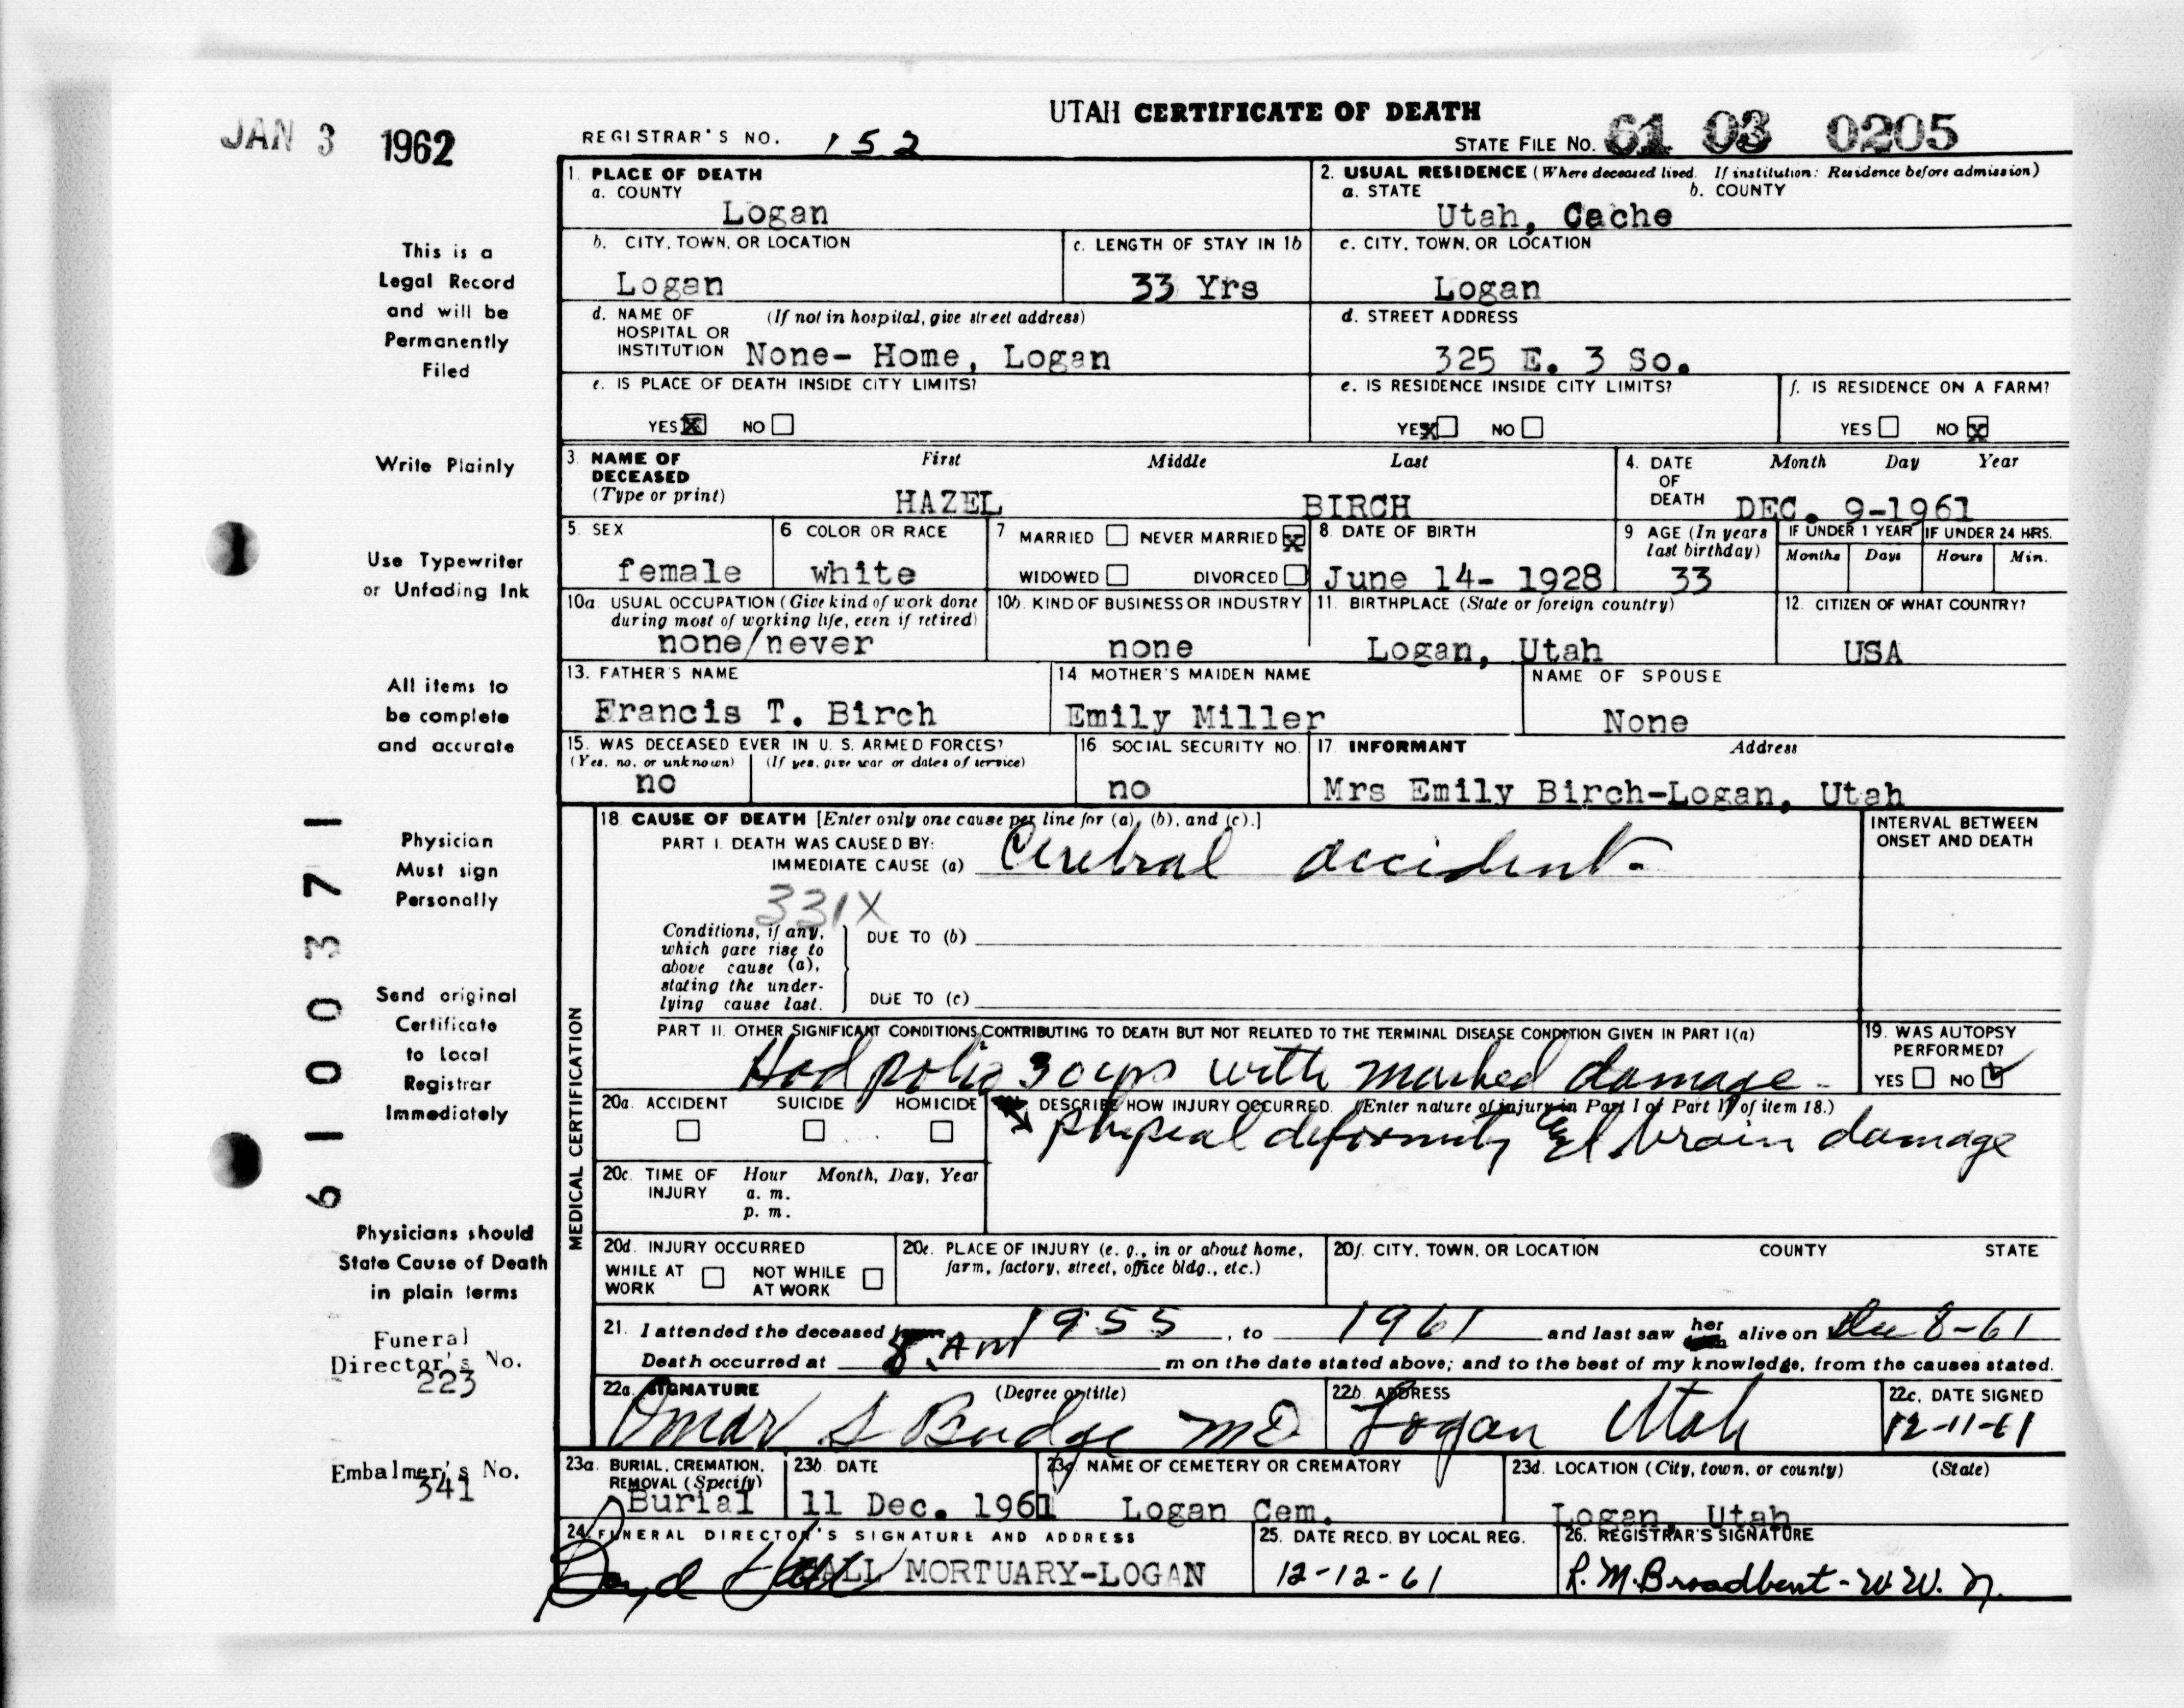 UTAH CERTIFICATE OF DEATH
JAN 3 1962
REGISTRAR'S NO. 152
STATE FILE NO. 61 03 0205
1. PLACE OF DEATH
a. COUNTY
Logan
2. USUAL RESIDENCE (Where deceased lived. If institution: Residence before admission)
a. STATE b. COUNTY
Utah, Cache
b. CITY, TOWN, OR LOCATION
Logan
c. LENGTH OF STAY IN 1b
33 Yrs
c. CITY, TOWN, OR LOCATION
Logan
d. NAME OF HOSPITAL OR INSTITUTION (If not in hospital, give street address)
None- Home, Logan
d. STREET ADDRESS
325 E. 3 So.
e. IS PLACE OF DEATH INSIDE CITY LIMITS?
YES X NO
e. IS RESIDENCE INSIDE CITY LIMITS?
YES X NO
f. IS RESIDENCE ON A FARM?
YES NO X
3. NAME OF DECEASED (Type or print)
First Middle Last
HAZEL BIRCH
4. DATE OF DEATH Month Day Year
DEC. 9-1961
5. SEX
female
6 COLOR OR RACE
white
7 MARRIED NEVER MARRIED X
WIDOWED DIVORCED
8. DATE OF BIRTH
June 14- 1928
9 AGE (In years last birthday)
33
IF UNDER 1 YEAR
Months Days
IF UNDER 24 HRS.
Hours Min.
10a. USUAL OCCUPATION (Give kind of work done during most of working life, even if retired)
none/never
10b. KIND OF BUSINESS OR INDUSTRY
none
11. BIRTHPLACE (State or foreign country)
Logan, Utah
12. CITIZEN OF WHAT COUNTRY?
USA
13. FATHER'S NAME
Francis T. Birch
14 MOTHER'S MAIDEN NAME
Emily Miller
NAME OF SPOUSE
None
15. WAS DECEASED EVER IN U. S. ARMED FORCES?
(Yes, no, or unknown) (If yes, give war or dates of service)
no
16 SOCIAL SECURITY NO.
no
17. INFORMANT Address
Mrs Emily Birch-Logan, Utah
MEDICAL CERTIFICATION
18. CAUSE OF DEATH [Enter only one cause per line for (a), (b), and (c).]
PART I. DEATH WAS CAUSED BY:
IMMEDIATE CAUSE (a) Cerebral accident-
331X
Conditions, if any, which gave rise to above cause (a), stating the underlying cause last.
DUE TO (b)
DUE TO (c)
INTERVAL BETWEEN ONSET AND DEATH
PART II. OTHER SIGNIFICANT CONDITIONS CONTRIBUTING TO DEATH BUT NOT RELATED TO THE TERMINAL DISEASE CONDITION GIVEN IN PART I(a)
Had polio 30 yrs with marked damage-
19. WAS AUTOPSY PERFORMED?
YES NO
20a. ACCIDENT SUICIDE HOMICIDE
DESCRIBE HOW INJURY OCCURRED. (Enter nature of injury in Part I or Part II of item 18.)
physical deformity brain damage
20c. TIME OF INJURY Hour Month, Day, Year
a. m.
p. m.
20d. INJURY OCCURRED
WHILE AT WORK NOT WHILE AT WORK
20e. PLACE OF INJURY (e. g., in or about home, farm, factory, street, office bldg., etc.)
20f. CITY, TOWN, OR LOCATION COUNTY STATE
21. I attended the deceased 1955, to 1961 and last saw her alive on Dec 8-61
Death occurred at 8 AM m on the date stated above; and to the best of my knowledge, from the causes stated.
22a. SIGNATURE (Degree or title)
Omar S Budge MD
22b. ADDRESS
Logan Utah
22c. DATE SIGNED
12-11-61
23a. BURIAL, CREMATION, REMOVAL (Specify)
Burial
23b. DATE
11 Dec. 1961
23c. NAME OF CEMETERY OR CREMATORY
Logan Cem.
23d. LOCATION (City, town, or county) (State)
Logan, Utah
24. FUNERAL DIRECTOR'S SIGNATURE AND ADDRESS
Boyd Hall HALL MORTUARY-LOGAN
25. DATE RECD. BY LOCAL REG.
12-12-61
26. REGISTRAR'S SIGNATURE
R. M. Broadbent- W. W. N.
This is a
Legal Record
and will be
Permanently
Filed
Write Plainly
Use Typewriter
or Unfading Ink
All items to
be complete
and accurate
Physician
Must sign
Personally
Send original
Certificate
to Local
Registrar
Immediately
Physicians should
State Cause of Death
in plain terms
Funeral
Director's No.
223
Embalmer's No.
341
6100371